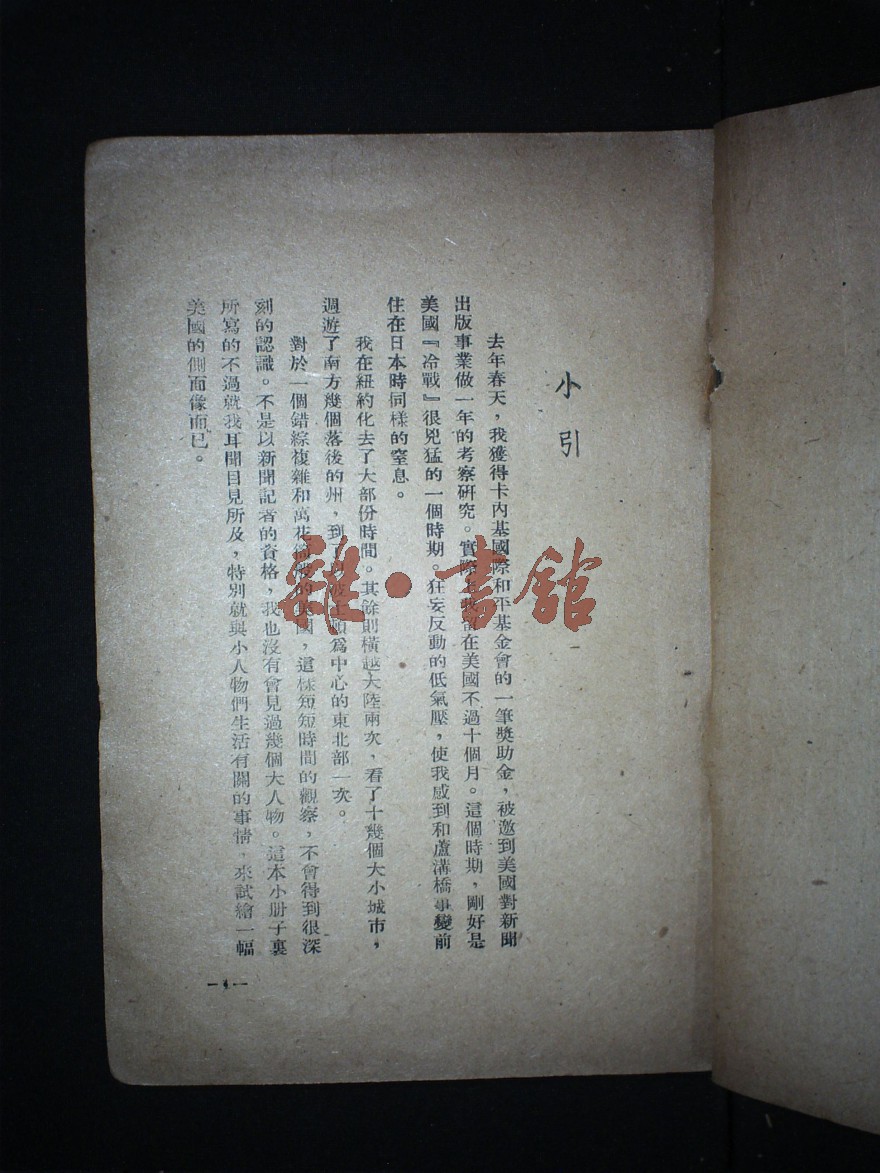 小引
去年春天，我獲得卡內基國際和平基金會的一筆獎助金，被邀到美國對新聞
出版事業做一年的考察研究。實際上我留在美國不過十個月。這個時期，剛好是
美國『冷戰』很兇猛的一個時期。狂妄反動的低氣壓，使我感到和蘆溝橋事變前
住在日本時同樣的窒息。
我在紐約化去了大部份時間。其餘則橫越大陸兩次，看了十幾個大小城市，
週遊了南方幾個落後的州，到了以波士頓爲中心的東北部一次。
對於一個錯綜複雜和萬花筒般的美國，這樣短短時間的觀察，不會得到很深
刻的認識。不是以新聞記者的資格，我也沒有會見過幾個大人物。這本小册子裏
所寫的不過就我耳聞目見所及，特別就與小人物們生活有關的事情，來試繪一幅
美國的側面像而已。
—1—
雜·書館